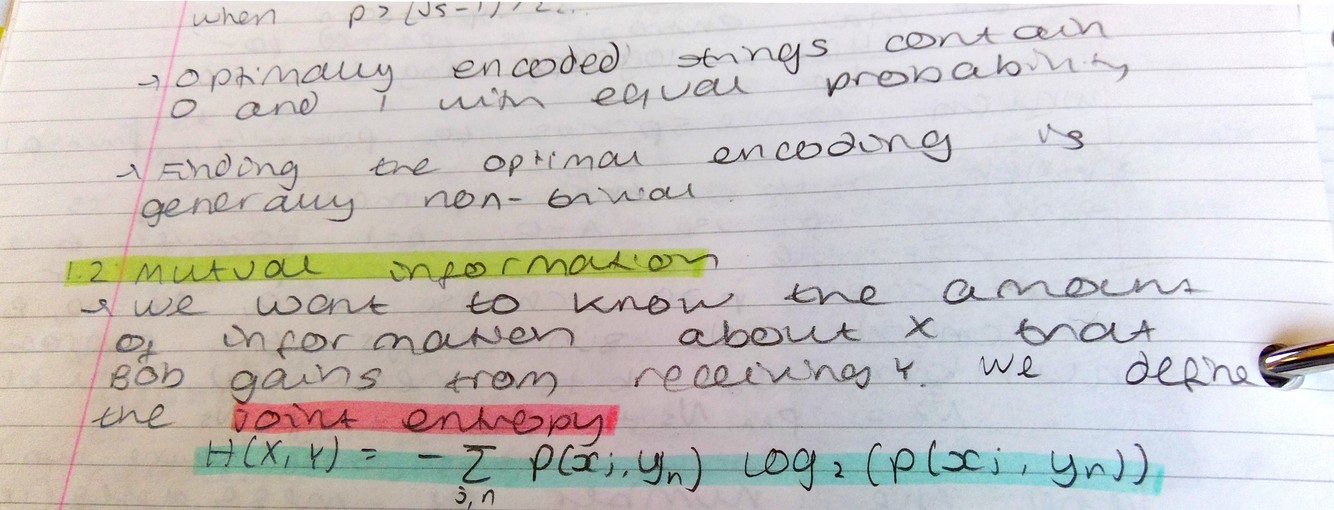 when p > (√5-1)/2...
→ optimally encoded strings contain
0 and 1 with equal probability
→ Finding the optimal encoding is
generally non-trivial.
1.2 Mutual information
→ we want to know the amount
of information about X that
Bob gains from receiving Y. We define
the joint entropy
H(X,Y) = - Σ P(xj,yn) log2 (P(xj,yn))
j,n